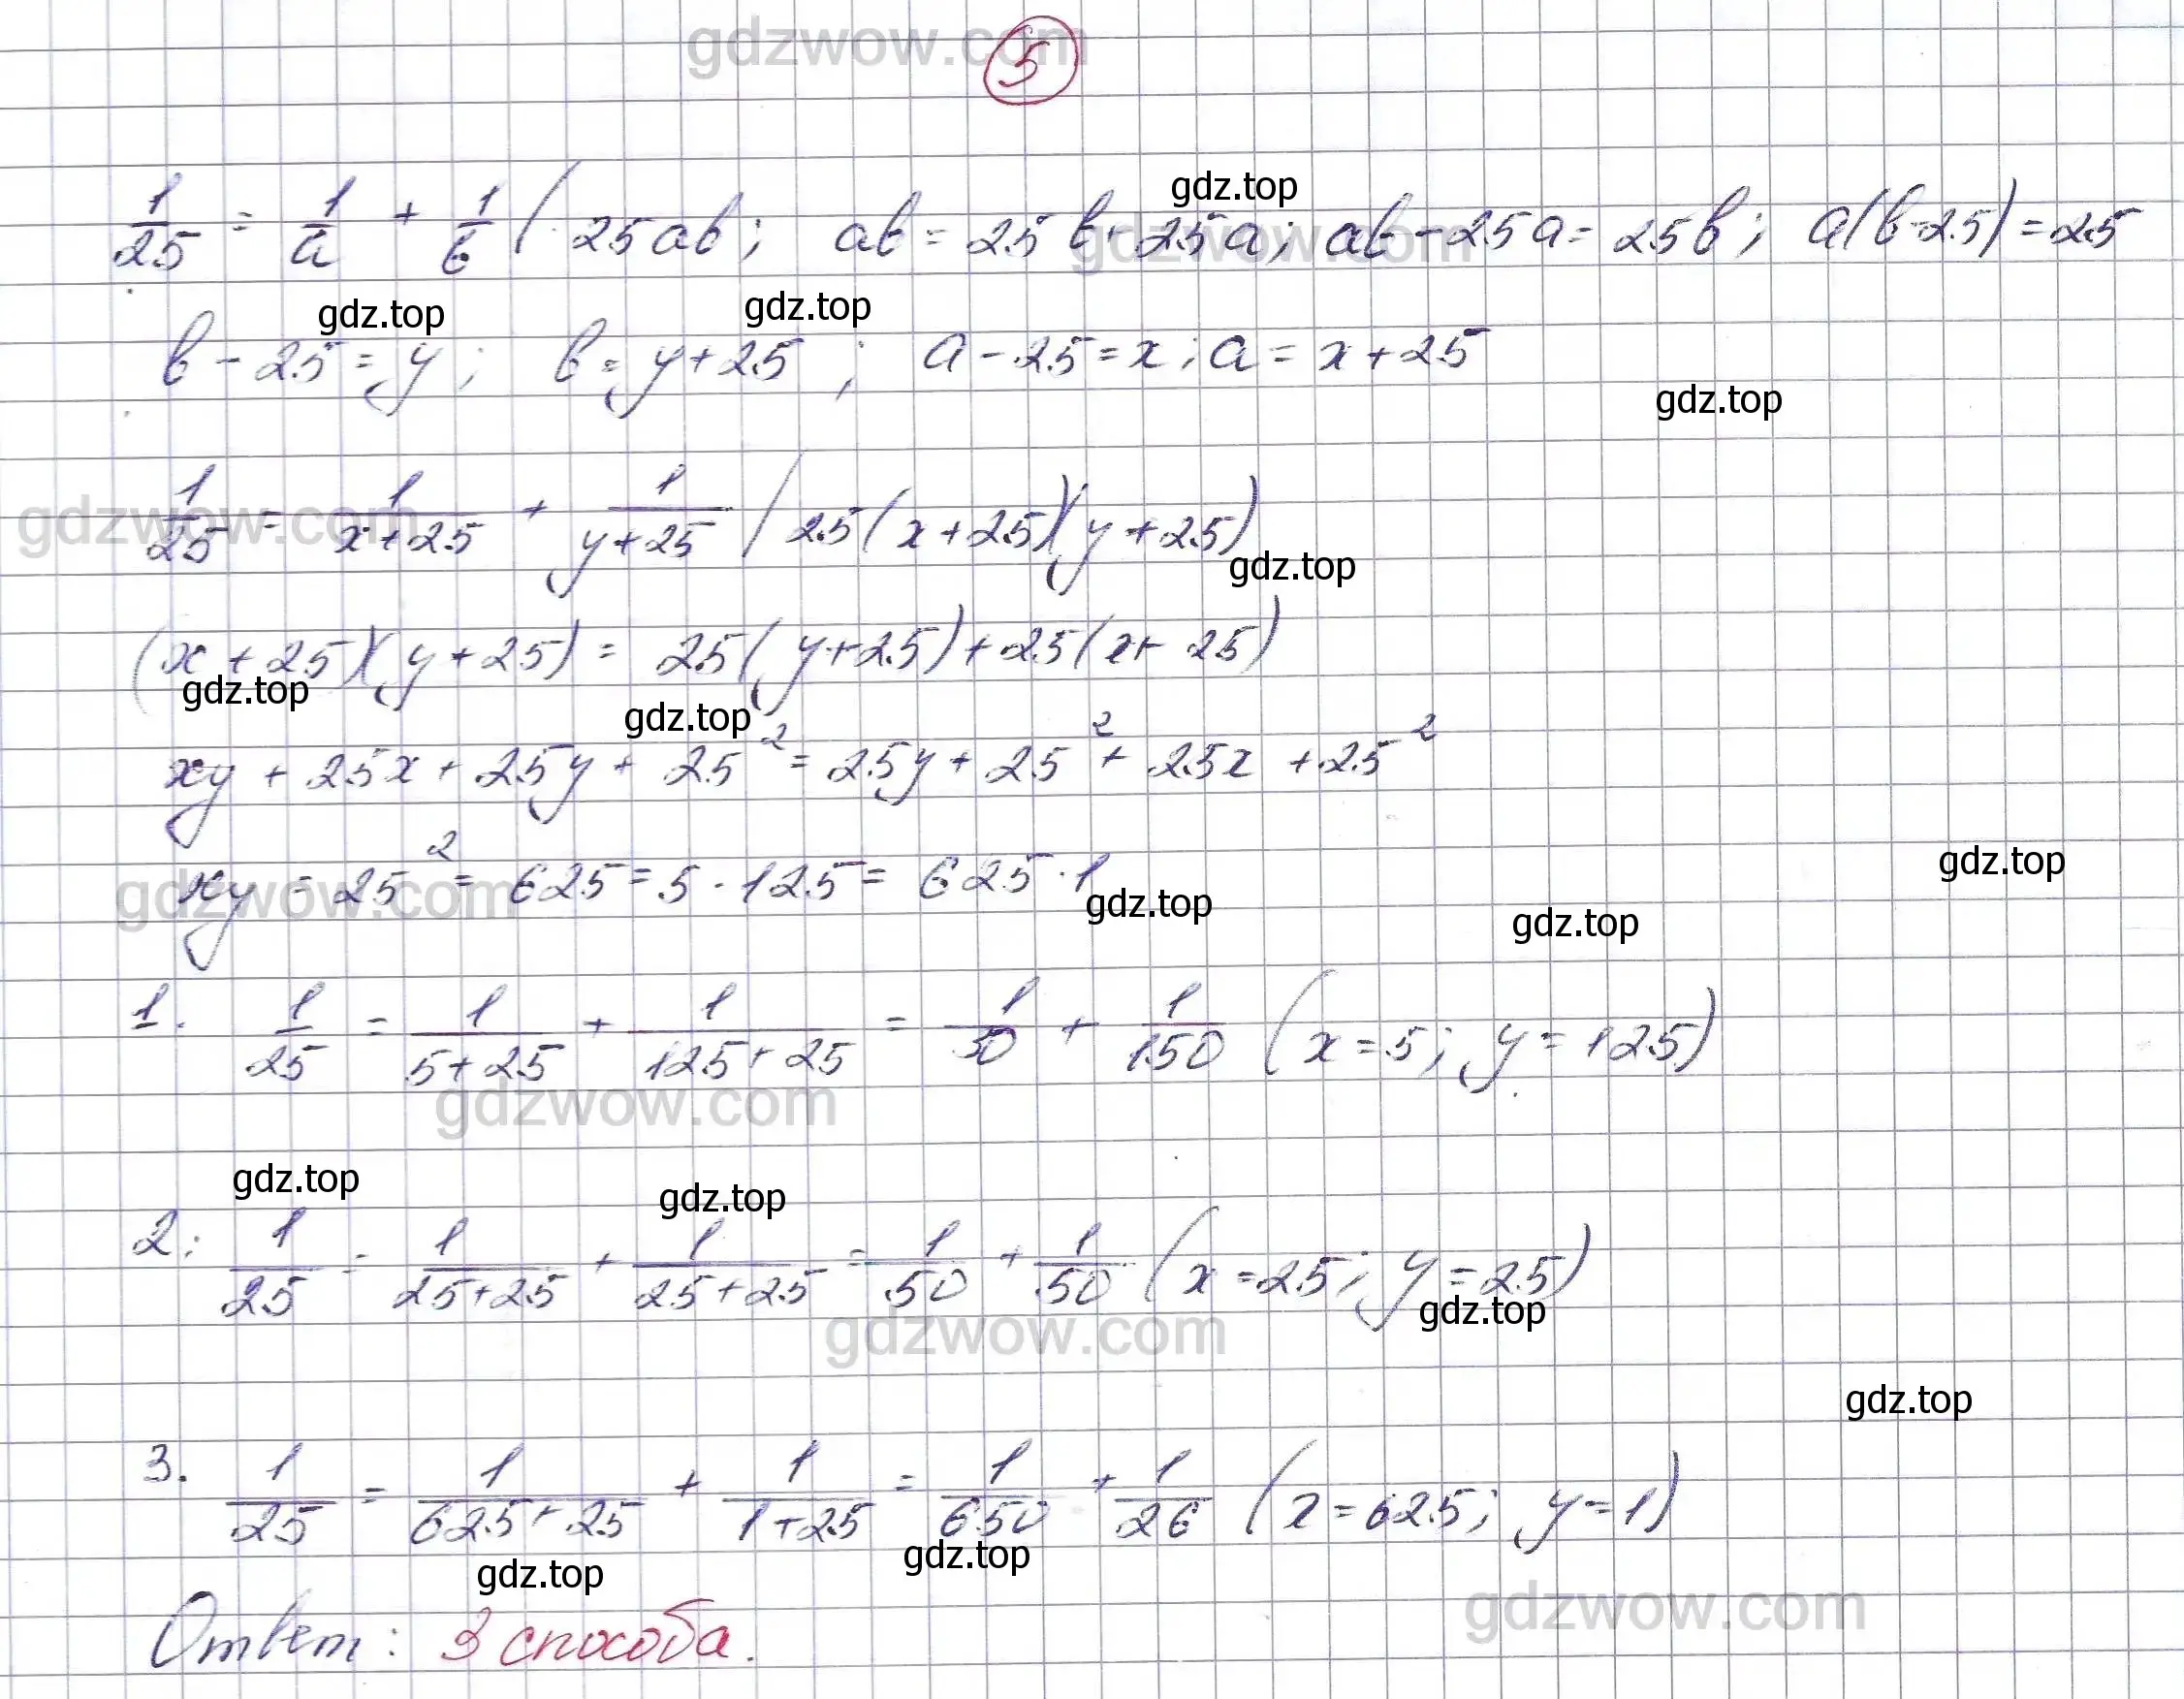 gdzwow.com
5
gdz.top
1/25 = 1/a + 1/b | · 25ab; ab = 25b + 25a; ab - 25a = 25b; a(b-25) = 25
gdzwow.com
gdz.top gdz.top
b - 25 = y; b = y + 25; a - 25 = x; a = x + 25
gdz.top
1/25 = 1/(x+25) + 1/(y+25) / 25(x+25)(y+25)
gdzwow.com
gdz.top
(x+25)(y+25) = 25(y+25) + 25(x+25)
gdz.top gdz.top
xy + 25x + 25y + 25² = 25y + 25² + 25x + 25²
xy = 25² = 625 = 5 · 125 = 625 · 1
gdzwow.com gdz.top gdz.top gdz.top
1. 1/25 = 1/(5+25) + 1/(125+25) = 1/30 + 1/150 (x=5; y=125)
gdzwow.com
gdz.top gdz.top
2. 1/25 = 1/(25+25) + 1/(25+25) = 1/50 + 1/50 (x=25; y=25)
gdz.top
gdzwow.com
gdz.top
3. 1/25 = 1/(625+25) + 1/(1+25) = 1/650 + 1/26 (x=625; y=1)
gdz.top gdz.top
gdzwow.com
Ответ: 3 способа.